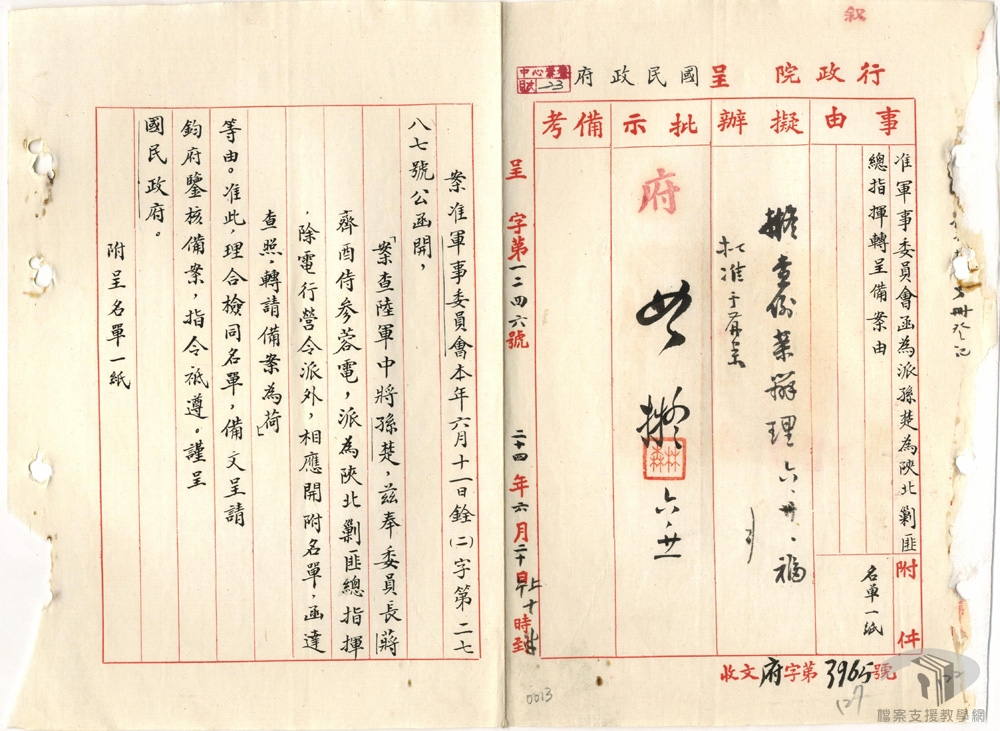 叙
行政院呈國民政府
事由
擬辦
批示
備考
准軍事委員會函為派孫楚為陝北剿匪
總指揮轉呈備案由
附件
名單一紙
擬查例案辦理 六、廿、
擬准予備案
府
如擬
六、廿一
呈字第一二四六號
二十四年六月二十日上午十時到
收文府字第3965號
案准軍事委員會本年六月十一日銓(二)字第二七
八七號公函開，
「案查陸軍中將孫楚，茲奉委員長蔣
齊酉侍參蓉電，派為陝北剿匪總指揮
，除電行營令派外，相應開附名單，函達
查照，轉請備案為荷」
等由。准此，理合檢同名單，備文呈請
鈞府鑒核備案，指令祗遵。謹呈
國民政府。
附呈名單一紙
0013
檔案支援教學網